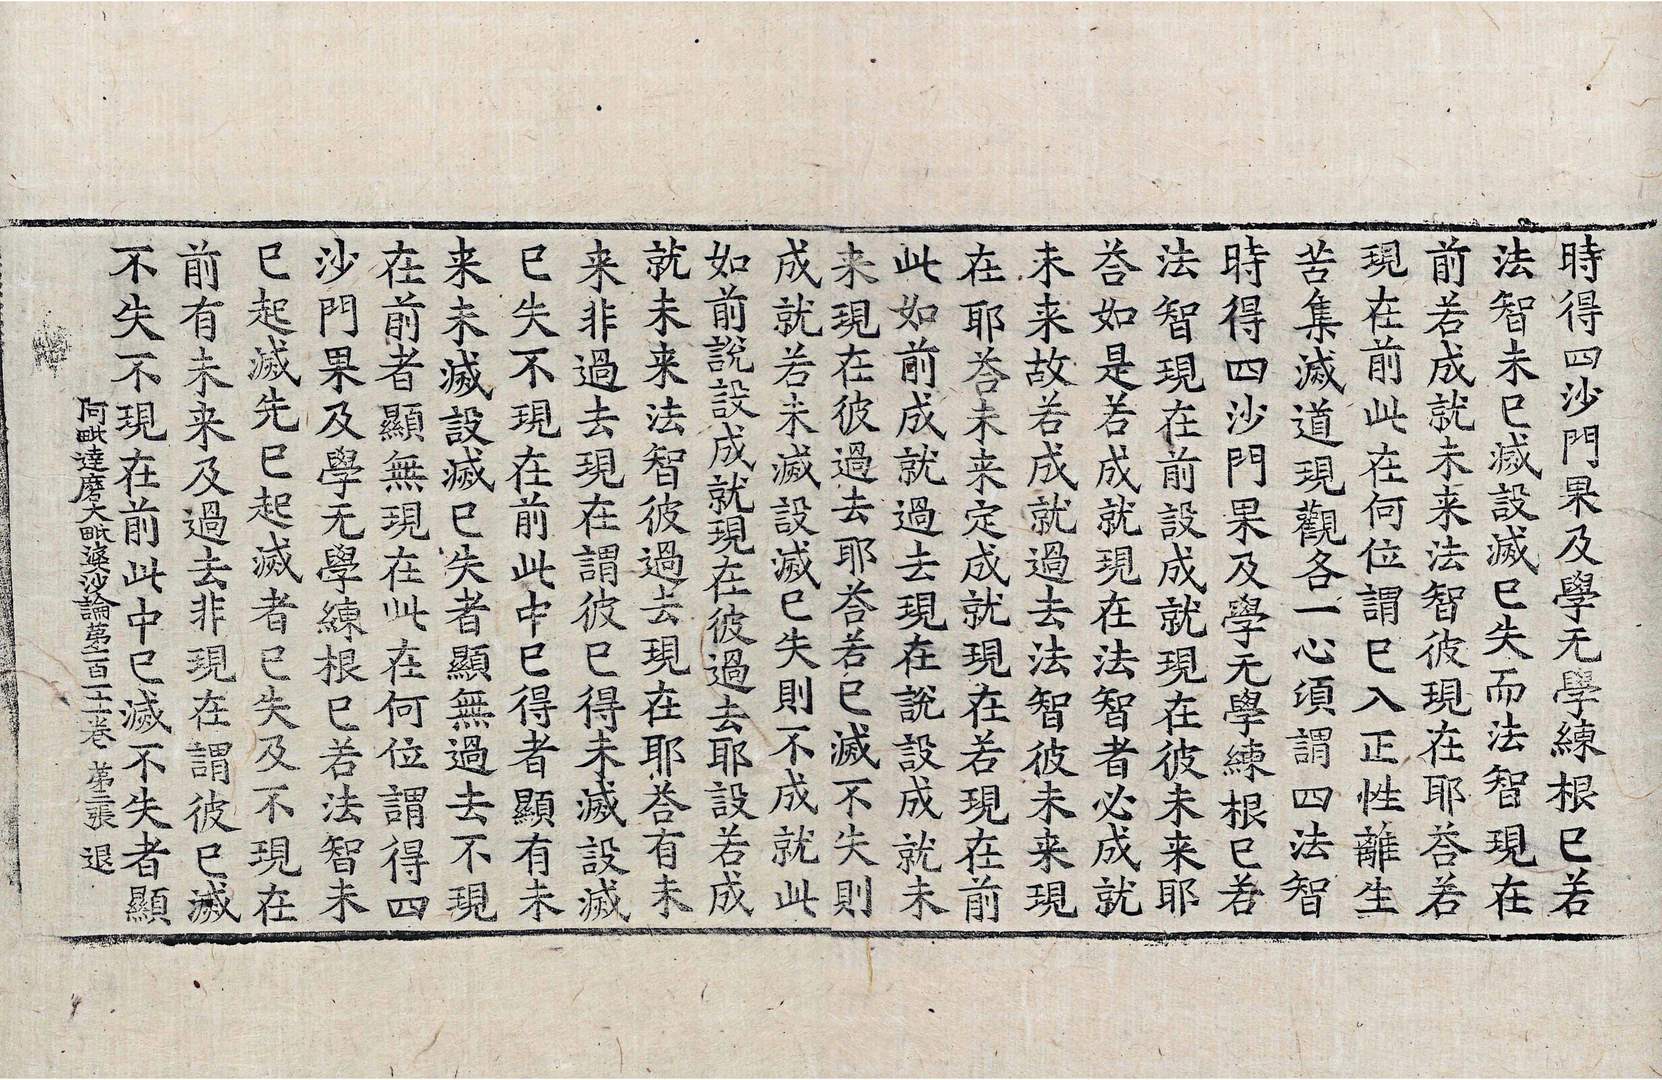 時得四沙門果及學无學練根已若
法智未已滅設滅已失而法智現在
前若成就未来法智彼現在耶荅若
現在前此在何位謂已入正性離生
苦集滅道現觀各一心頃謂四法智
時得四沙門果及學无學練根已若
法智現在前設成就現在彼未来耶
荅如是若成就現在法智者必成就
未来故若成就過去法智彼未来現
在耶荅未来定成就現在若現在前
此如前成就過去現在說設成就未
来現在彼過去耶荅若已滅不失則
成就若未滅設滅已失則不成就此
如前說設成就現在彼過去耶設若成
就未来法智彼過去現在耶荅有未
来非過去現在謂彼已得未滅設滅
已失不現在前此中已得者顯有未
来未滅設滅已失者顯無過去不現
在前者顯無現在此在何位謂得四
沙門果及學无學練根已若法智未
已起滅先已起滅者已失及不現在
前有未来及過去非現在謂彼已滅
不失不現在前此中已滅不失者顯
阿毗達磨大毗婆沙論第一百一十卷 第三張 退